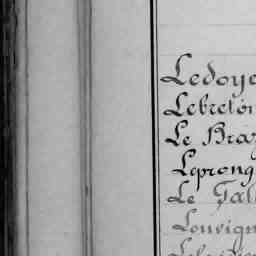 Ledoye
Lebreton
Le Braz
Leprong
Le Fall
Louvign